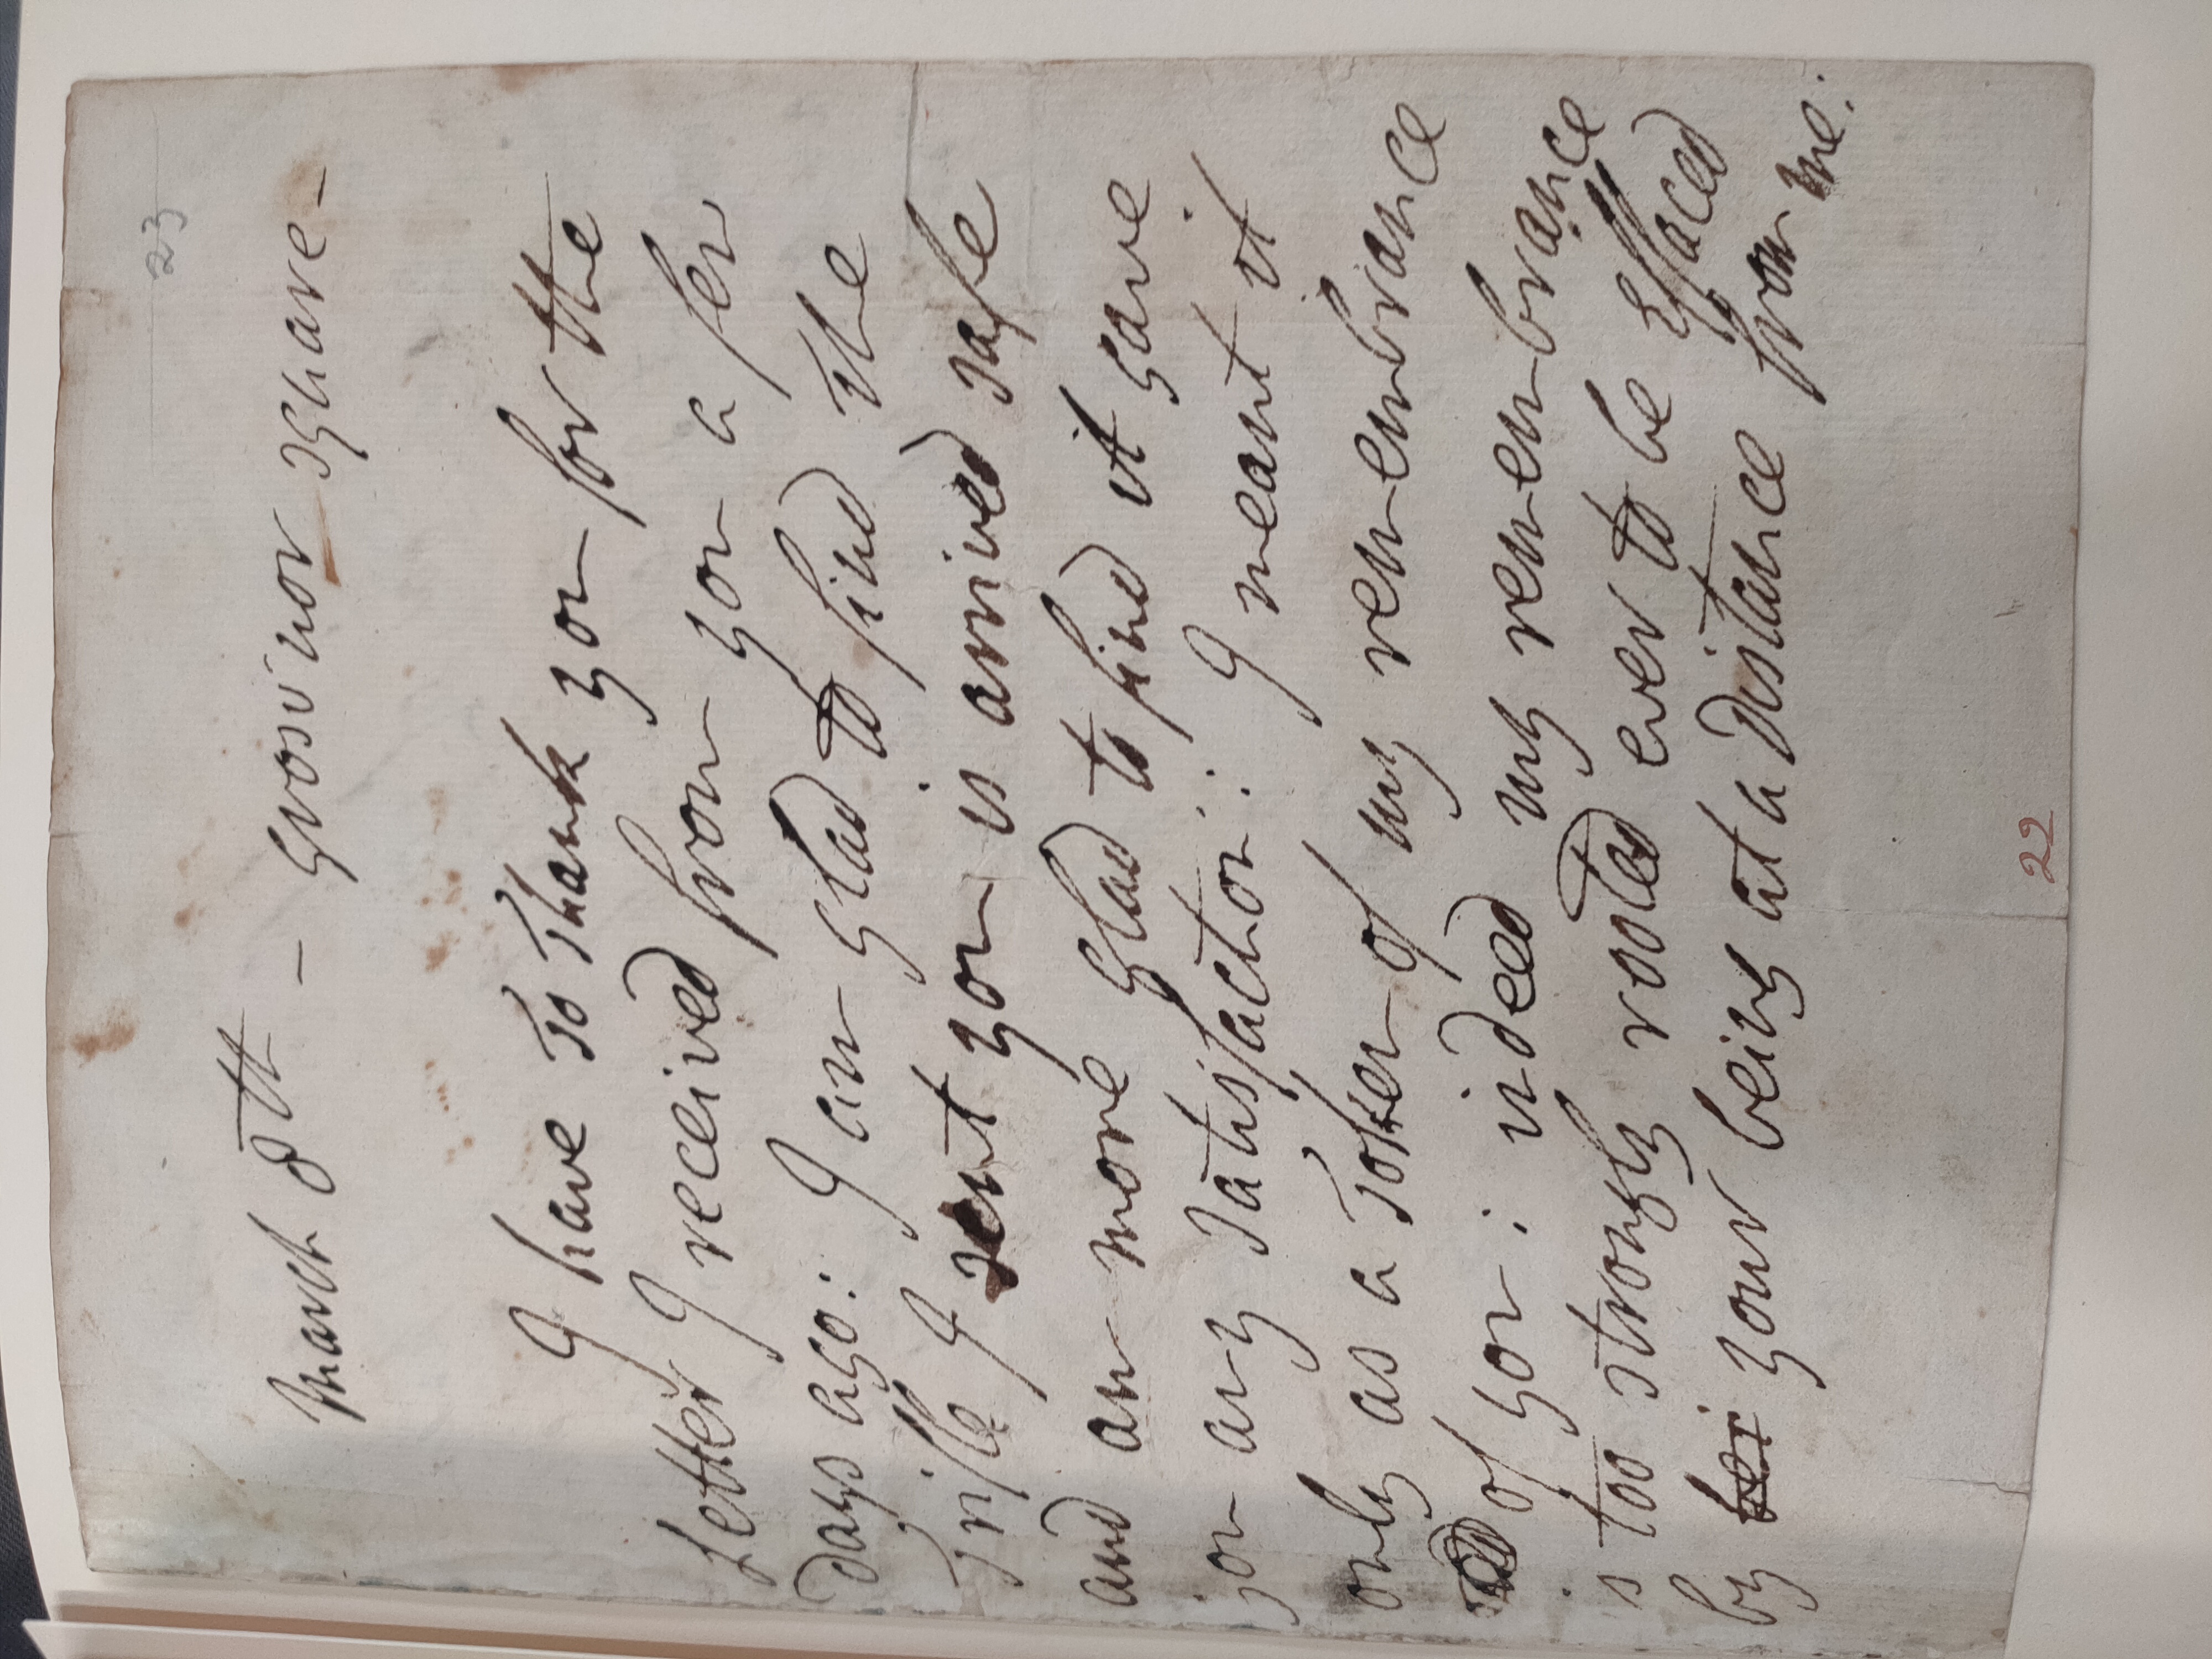 23
March 8th - Grosvinor Square -
I have to Thank you for the
Letter I received from you a few
Days ago: I am glad to find the
Trifle I sent you is arrived safe
and am more glad to find it gave
you any satisfaction: I meant it
only as a Token of my remembrance
of you: indeed my remembrance
is too strongly rooted ever to be Effaced
by bei your being at a Distance from me:
22